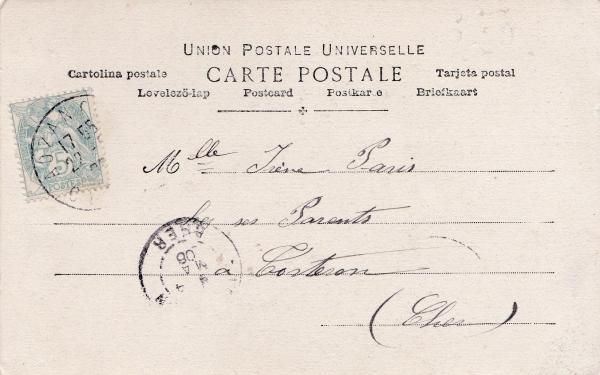 UNION POSTALE UNIVERSELLE
Cartolina postale CARTE POSTALE Tarjeta postal
Levelező-lap Postcard Postkarte Briefkaart
5
POSTES
Mlle Irène Paris
chez ses Parents
à
(Cher)